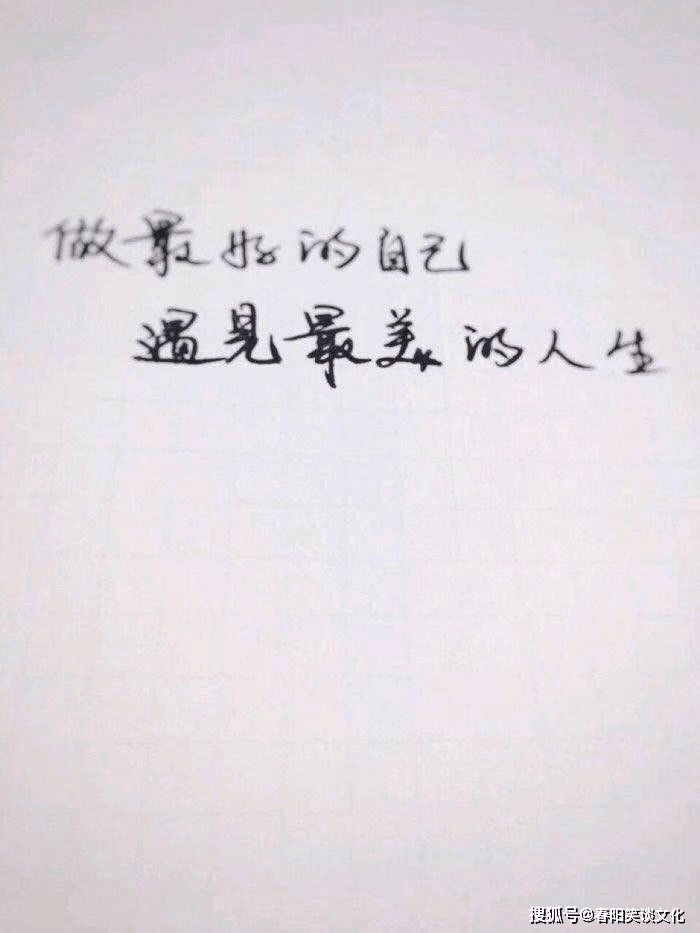 做最好的自己
遇见最美的人生
搜狐号@春阳笑谈文化